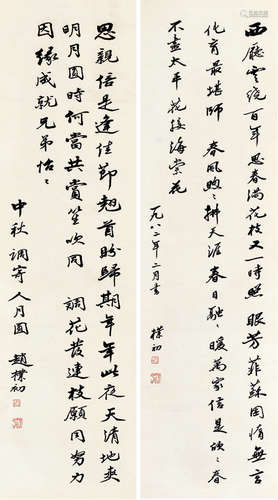 西廳雲繞百年思春滿花枝又一時照眼芳菲蘇困情無言
化育最堪師 春風吹拂天涯春日融暖萬家信是春
不盡太平花接海棠花
一九八二年二月書 樸初
思親信是逢佳節翹首盼歸期年年此夜天清地爽
明月圓時何當共賞笙吹同調花發連枝願同努力
因緣成就兄弟怡怡
中秋 調寄人月圓 趙樸初